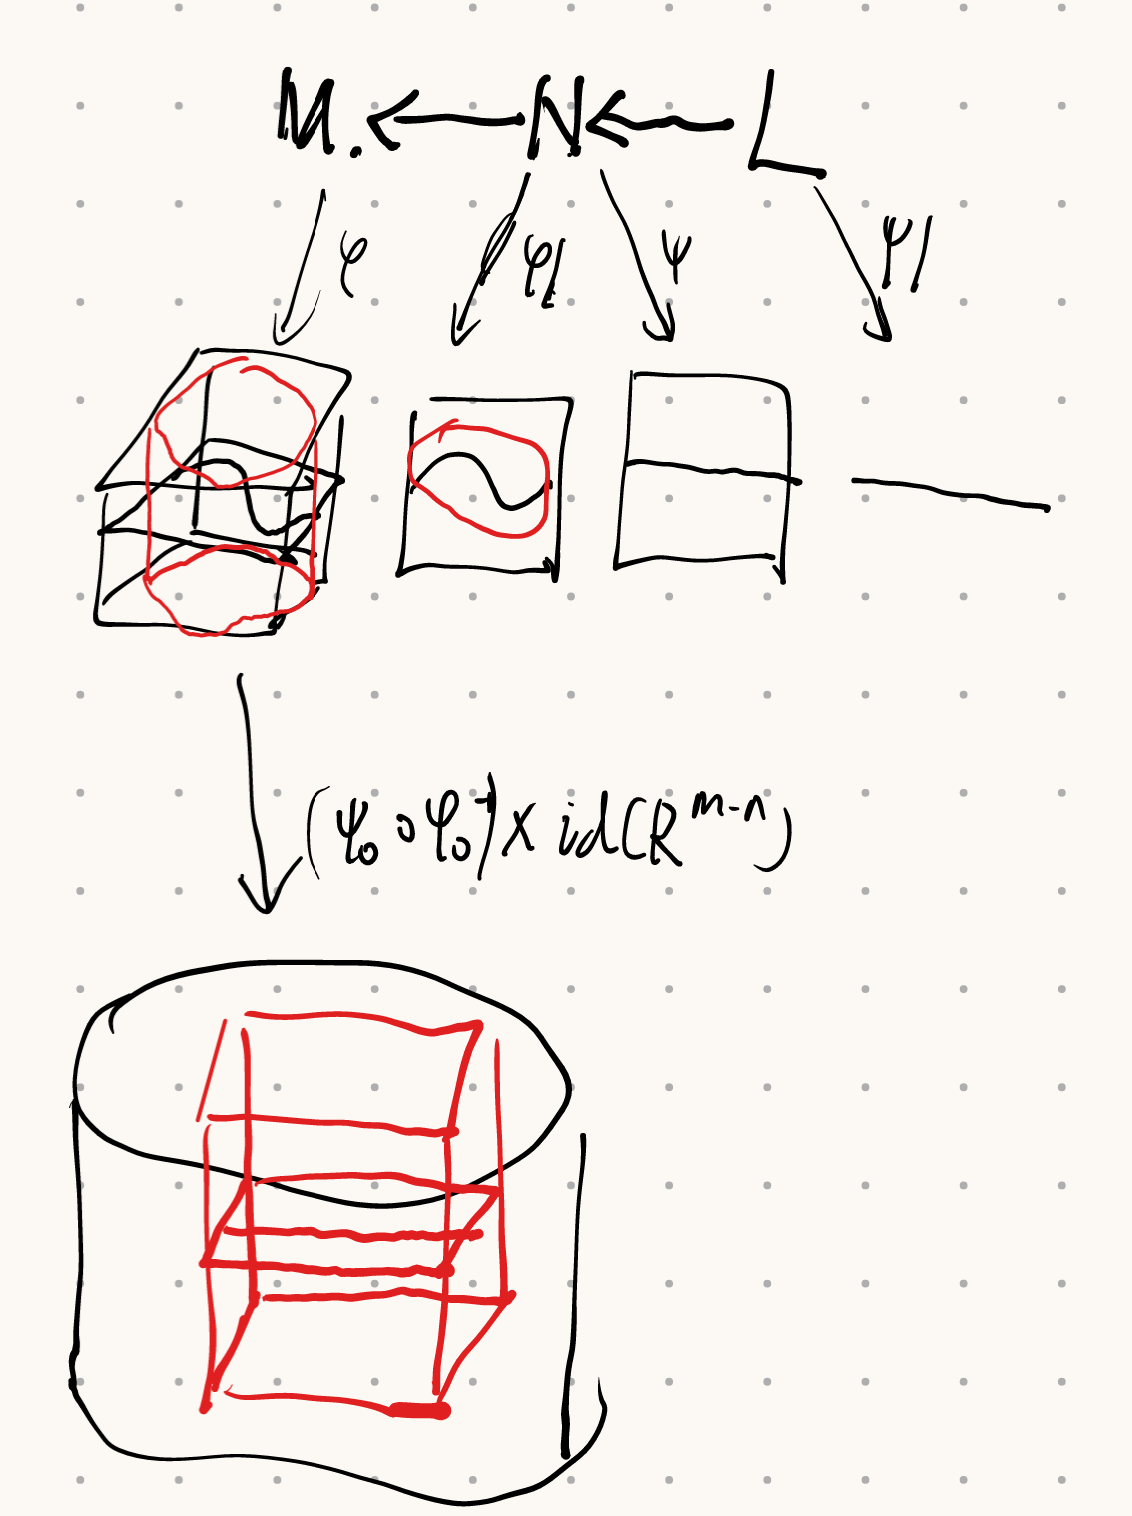 M. ← N ← L
φ φ| ψ ψ|
(ψ₀ ∘ φ₀⁻¹) × id(R^{m-n})